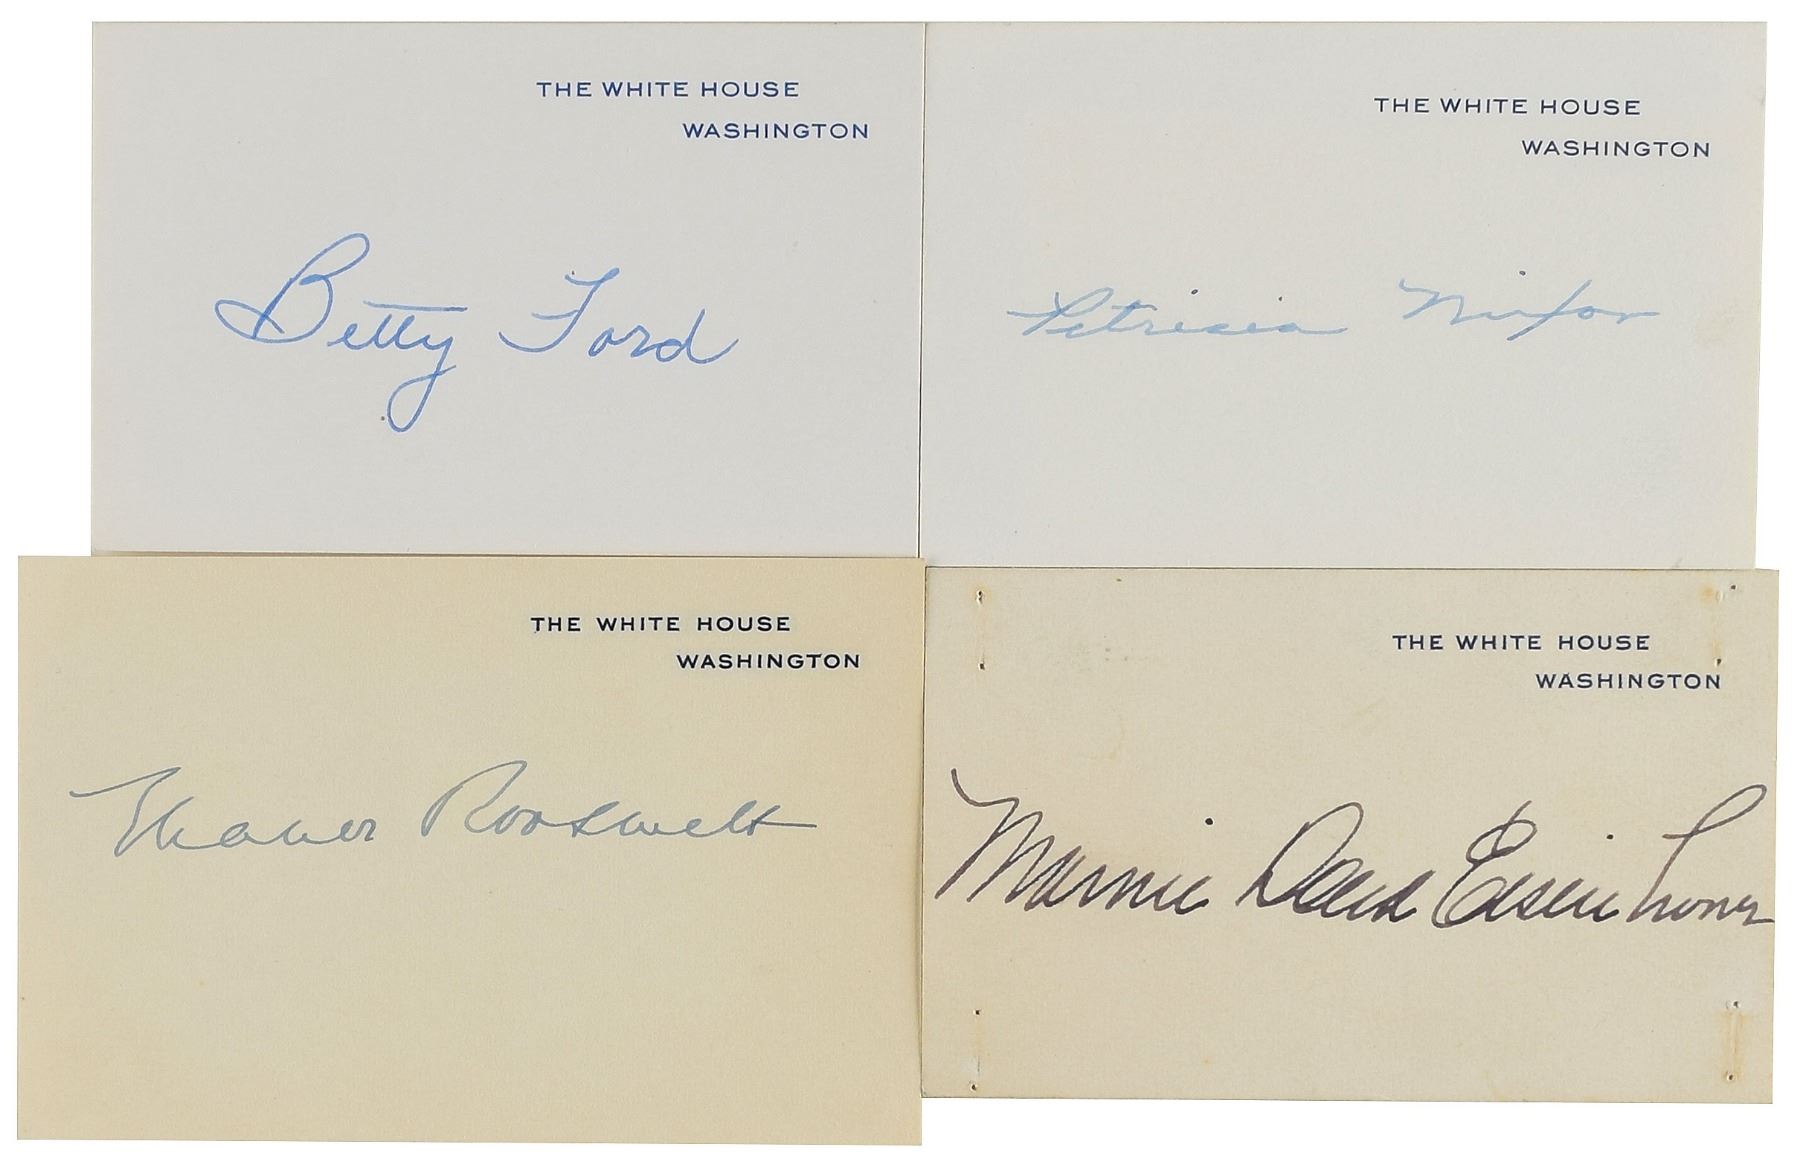 THE WHITE HOUSE
WASHINGTON
Betty Ford
THE WHITE HOUSE
WASHINGTON
Patricia Nixon
THE WHITE HOUSE
WASHINGTON
Eleanor Roosevelt
THE WHITE HOUSE
WASHINGTON
Mamie Doud Eisenhower